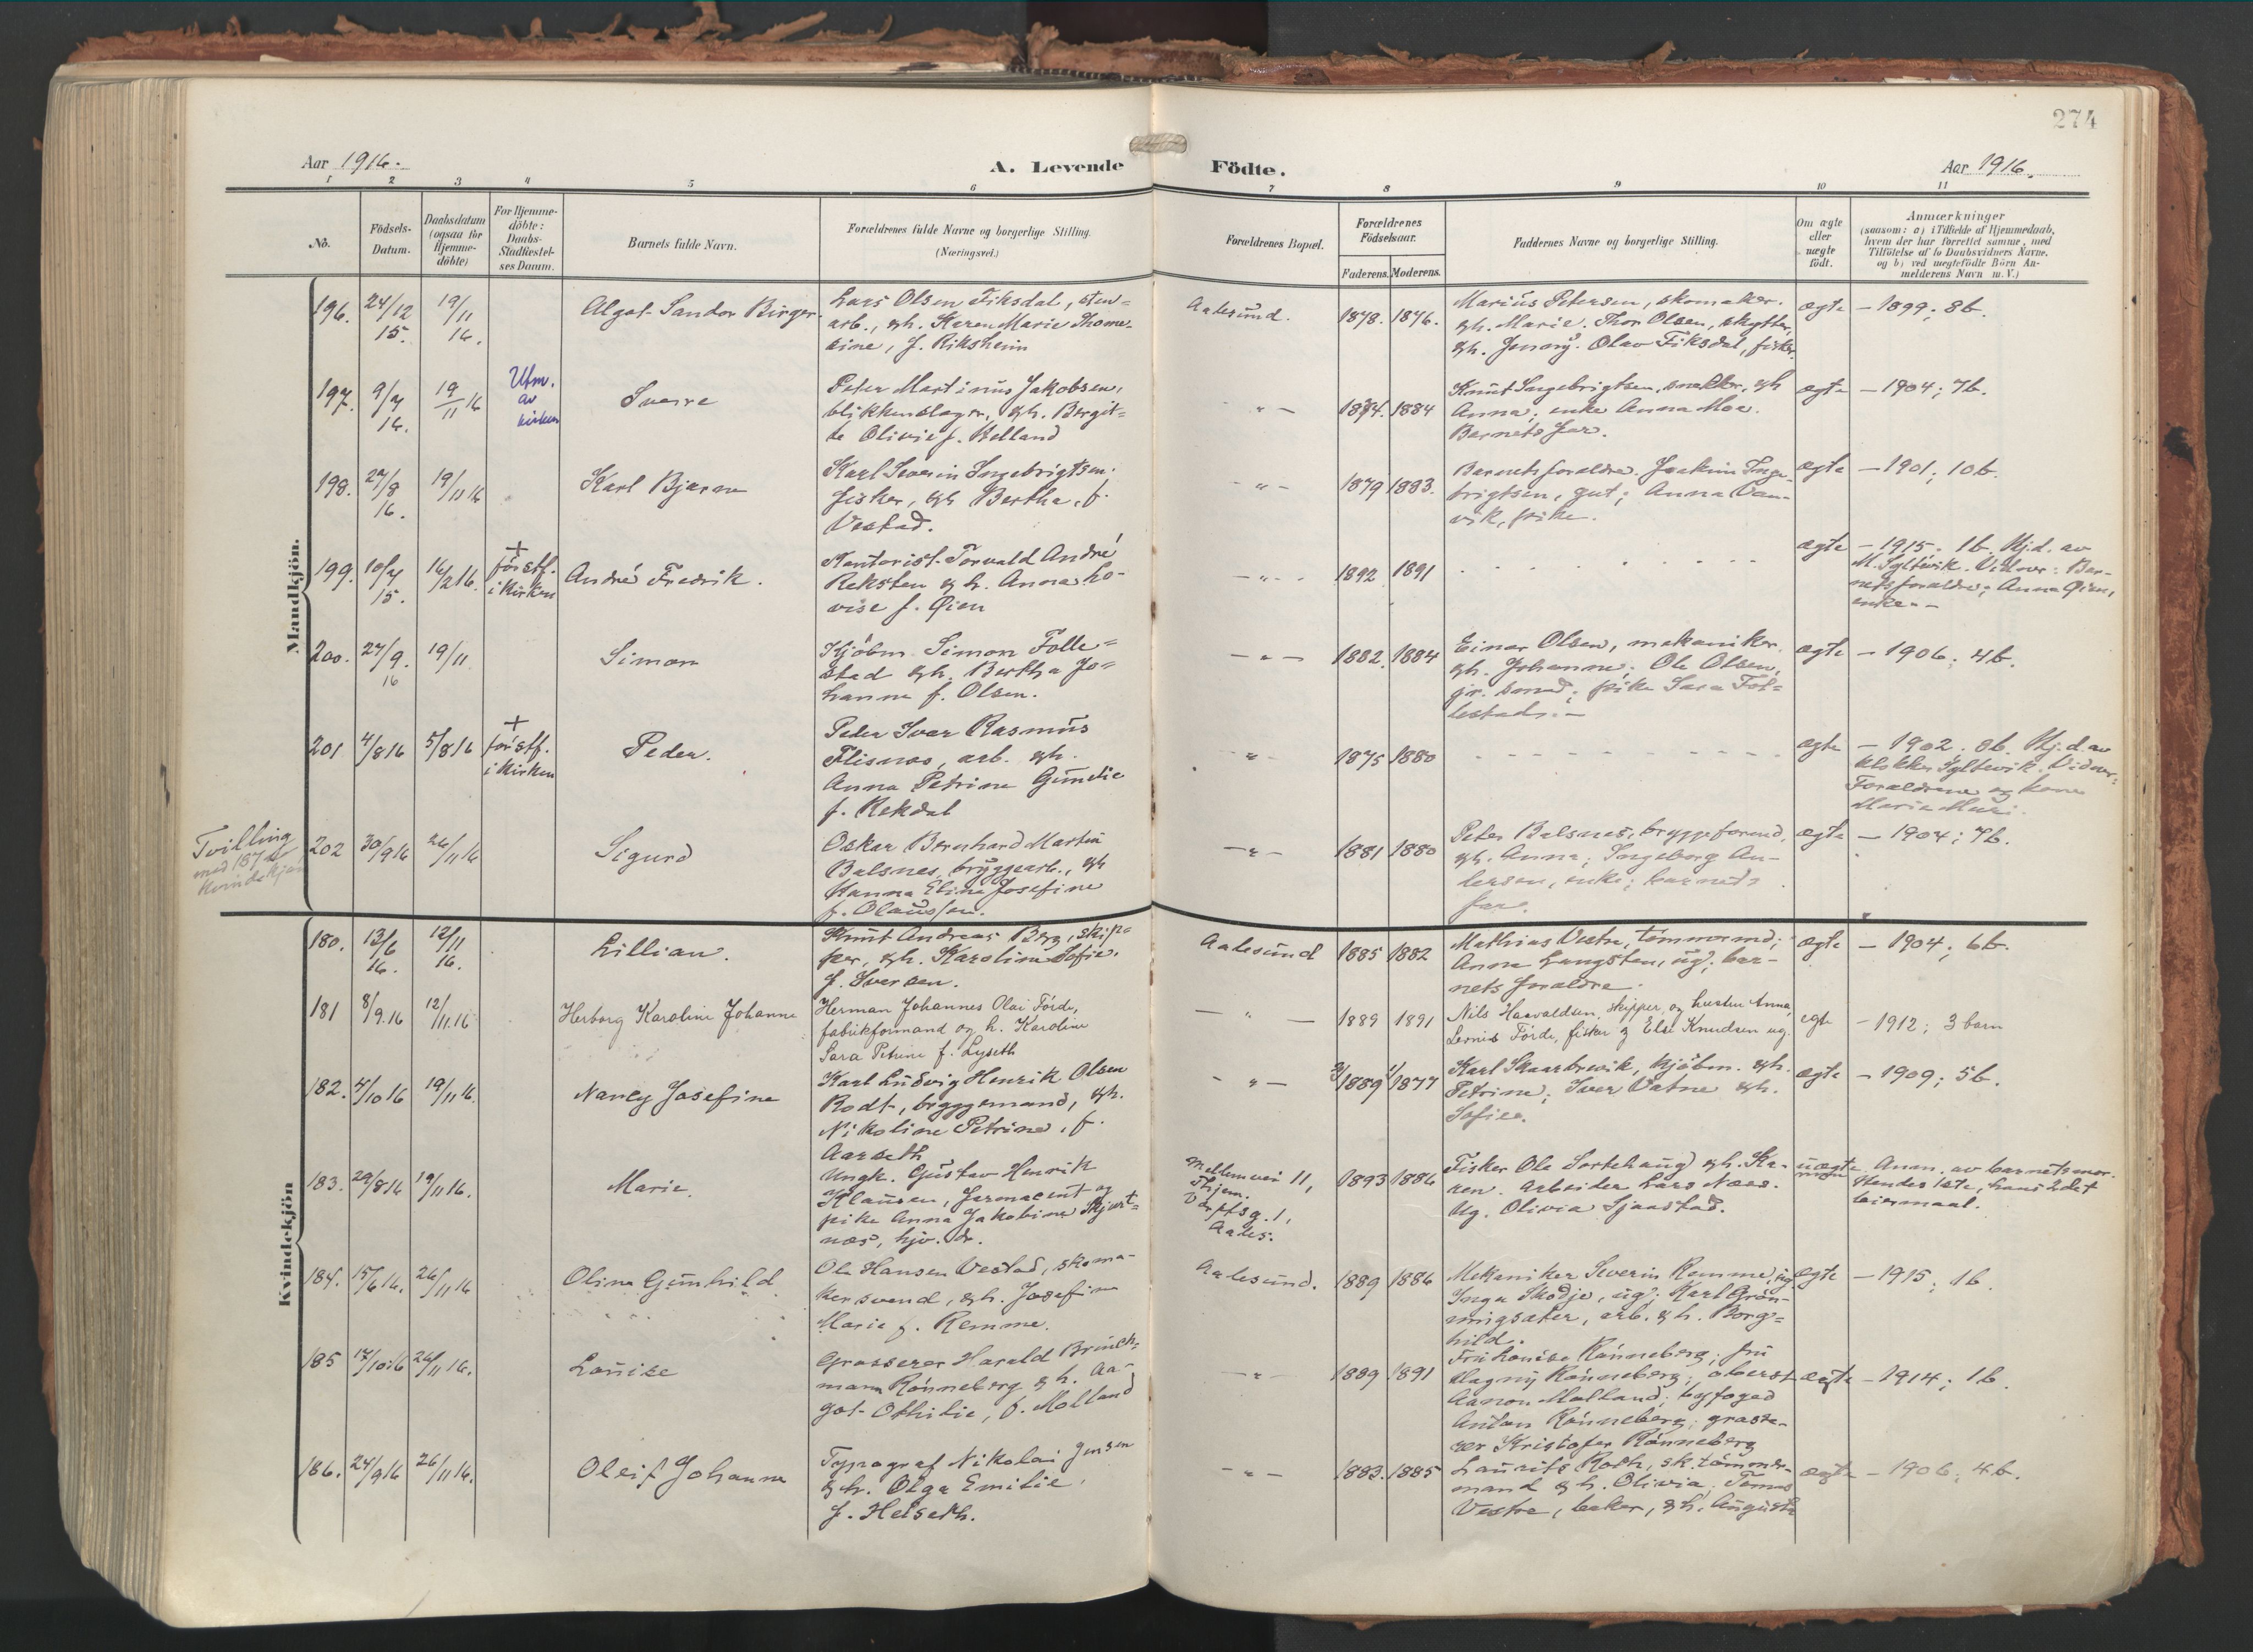 274
Aar 1916.
A. Levende
Födte.
Aar 1916.
1 2 3 4 5 6 7 8 9 10 11
No.
Födsels-
Datum.
Daabsdatum
(ogsaa for
Hjemme-
döbte)
For Hjemme-
döbte:
Daabs-
Stadfæstel-
ses Datum.
Barnets fulde Navn.
Forældrenes fulde Navne og borgerlige Stilling.
(Næringsvei.)
Forældrenes Bopæl.
Forældrenes
Födselsaar.
Faderens. Moderens.
Faddernes Navne og borgerlige Stilling.
Om ægte
eller
uægte
födt.
Anmærkninger
(saasom: a) i Tilfælde af Hjemmedaab,
hvem der har forrettet samme, med
Tilföielse af to Daabsvidners Navne,
og b) ved uægtefödte Börn An-
melderens Navn m. V.)
Mandkjön.
196. 24/12 15. 19/11 16. Algot Sandor Birger
Lars Olsen Fiksdal, sten-
arb., & h. Karen Marie Thome-
sine, f. Riksheim
Aalesund. 1878. 1876.
Marius Petersen, skomaker.
& h. Marie. Thor Olsen, skytter,
& h. Jenny. Olav Fiksdal, fisker.
ægte - 1899; 8 b.
197. 9/7 16. 19/11 16 Utm. av kirken Sverre
Peter Martinus Jakobsen,
blikkenslager, & h. Bergit-
te Olivie f. Helland
- " - 1884
Knut Ingebrigtsen, snekker, & h
Anna; enke Anna Moe.
Barnets far.
ægte - 1904; 7 b.
198. 27/8 16. 19/11 16 Karl Bjarne
Karl Severin Ingebrigtsen,
fisker, & h Bertha, f.
Vestad.
- " - 1879 1883.
Barnets foraldre. Joakim Inge-
brigtsen, gut; Anna Van-
vik, pike.
ægte - 1901; 10 b.
199. 10/7 15. 16/2 16. + förstf. i kirken André Fredrik.
Kontorist Torvald André
Reksten & h. Anna Lo-
vise f. Øien
- " - 1892 1891
ægte - 1915. 1 b. Hj.d. av
M. Syltevik. Vidner: Bar-
nets foraldre; Anna Øien,
enke. -
200. 27/9 16 19/11 Simon
Kjöbm. Simon Folle-
stad & h. Bertha Jo-
hanne f. Olsen.
- " - 1882. 1884
Einar Olsen, mekaniker,
& h. Johanne; Ole Olsen,
jr. smed; pike Sara Fol-
lestad. -
ægte - 1906; 4 b.
201 4/8 16 5/8 16 + förstf. i kirken Peder.
Peter Ivar Rasmus
Flisnes, arb. & h.
Anna Petrine Gundie
f. Rekdal
- " - 1875 1880
ægte - 1902. 8 b. Hj.d. av
klokker Syltevik. Vidner:
Foraldrene og kone
Maria Muri.
Tvilling
med 187
kvindekjön
202 30/9 16 26/11 16 Sigurd
Oskar Bernhard Martin
Balsnes, bryggearb., & h
Hanna Eline Josefine
f. Olaussen.
- " - 1881 1880
Peter Balsnes, bryggeformd,
& h. Anna; Ingeborg An-
dersen, enke; barnets
far.
ægte - 1904; 7 b.
Kvindekjön
180. 13/6 16. 12/11 16. Lillian.
Knut Andreas Berg, skip-
per, & h. Karoline Sofie,
f. Iversen.
Aalesund 1885 1882
Mathias Vestre, tömmermd;
Anna Langsten, ug; bar-
nets foraldre.
ægte - 1904; 6 b.
181 8/9.16 12/11.16 Herborg Karoline Johanne
Herman Johannes Olai Förde,
fabrikformand og h. Karoline
Sara Petrine f. Lyseth
- " - 1889 1891
Nils Haavaldsen, skipper, og hustru Anna,
Leonis Förde, fisker og Else Knudsen ug.
egte - 1912; 3 barn
182. 4/10 16 19/11 16. Nancy Josefine
Karl Ludvig Henrik Olsen
Rodt, bryggemand, & h.
Nikoline Petrine, f.
Aarseth
- " - 1889 1877
Karl Skaarbrevik, kjöbm. & h.
Petrine; Iver Vatne & h.
Sofie.
ægte - 1909; 5 b.
183. 29/8 16 19/11 16. Marie.
Ungk. Gustav Henrik
Klausen, farmacent og
pike Anna Jakobine Skjort-
nes, hjv. dr.
Mellemvei 11,
Aales.
1893 1886
Fisker Ole Sortehaug & h. Ka-
ren. Arbeider Lars Næss.
Ug. Olivia Sjaastad.
uægte Anm. av barnets mor.
Hendes 1ste, hans 2det
leiermaal.
184. 15/6 16. 26/11 16 Olina Gunhild
Ole Hansen Vestad, skoma-
kersvend, & h. Josefine
Marie f. Remme.
Aalesund. 1889 1886
Mekaniker Severin Remme, ug
Inga Skodje, ug; Karl Grön-
ningsæter, arb. & h. Borg-
hild.
ægte - 1915; 1 b.
185 17/10 16 26/11 16. Louise
Grosserer Harald Brinch-
mann Rönneberg & h. Aa-
got Othilie, f. Molland
- " - 1889 1891
Fru Louise Rönneberg; fru
Dagny Rönneberg; oberst
Aanon Molland; byfoged
Anton Rönneberg; grosse-
rer Kristofer Rönneberg
ægte - 1914; 1 b.
186. 24/9 16 26/11 16. Oleif Johanne
Typograf Nikolai Jensen
& h. Olga Emilie,
f. Helseth.
- " - 1883. 1885
Laurits Roth, sk.tömmer-
mand & h. Olivia; Tomas
Vestre, baker, & h. Augusta
ægte - 1906; 4 b.